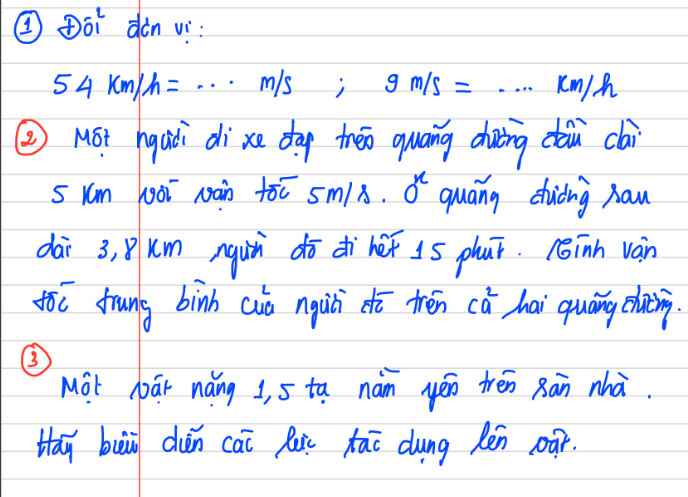 ① Đổi đơn vị:
54 Km/h = ... m/s ; 9 m/s = .... Km/h
② Một người đi xe đạp trên quãng đường đầu dài
5 Km với vận tốc 5m/s. Ở quãng đường sau
dài 3,8 Km người đó đi hết 15 phút. Tính vận
tốc trung bình của người đó trên cả hai quãng đường.
③
Một vật nặng 1,5 tạ nằm yên trên sàn nhà.
Hãy biểu diễn các lực tác dụng lên vật.